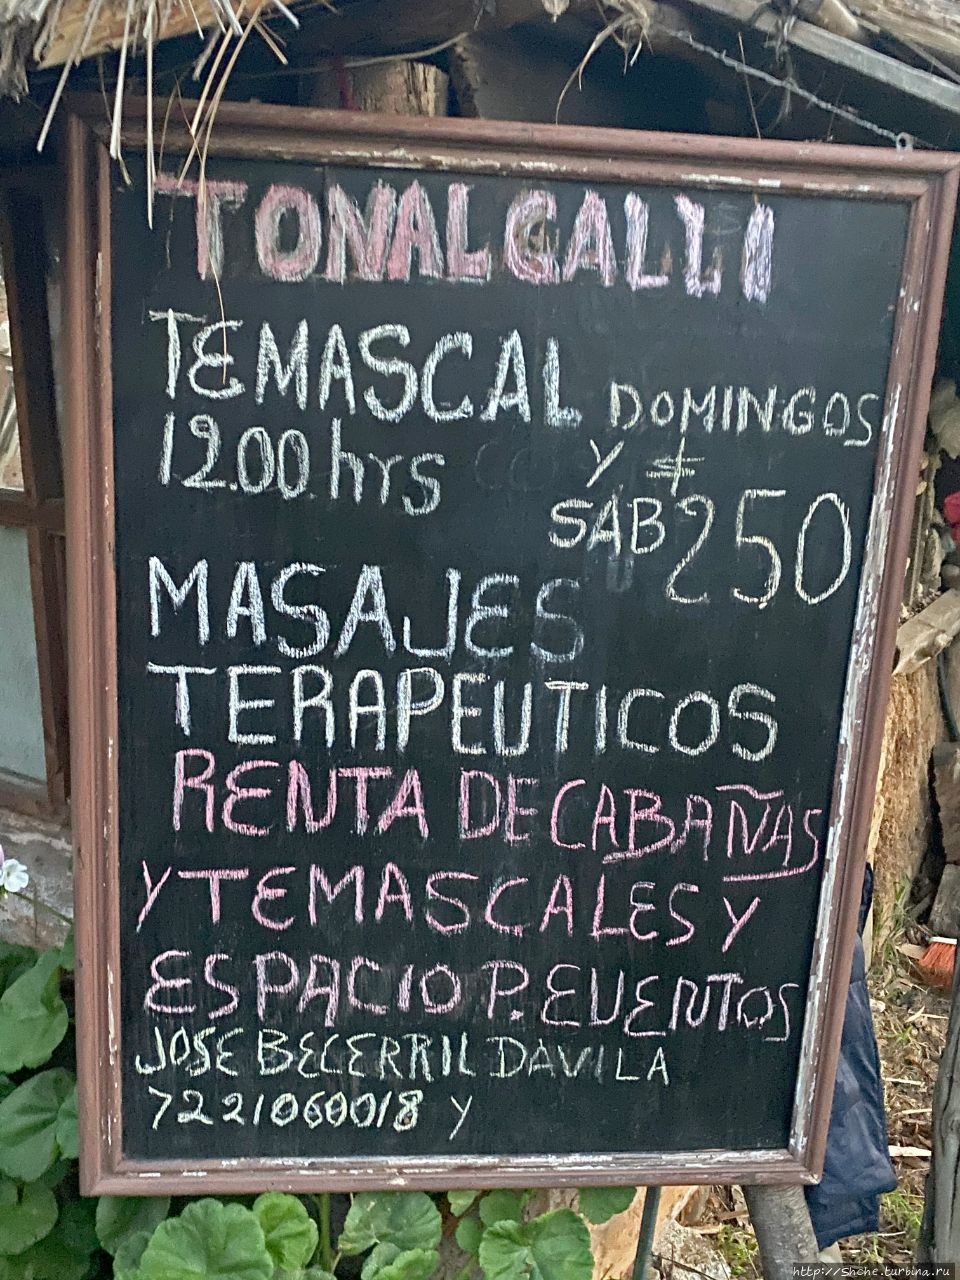 TONALCALLI
TEMASCAL DOMINGOS
12.00 hrs Y $
SAB 250
MASAJES
TERAPEUTICOS
RENTA DE CABAÑAS
Y TEMASCALES Y
ESPACIO P. EVENTOS
JOSE BECERRIL DAVILA
7221060018 Y
http://shche.turbina.ru